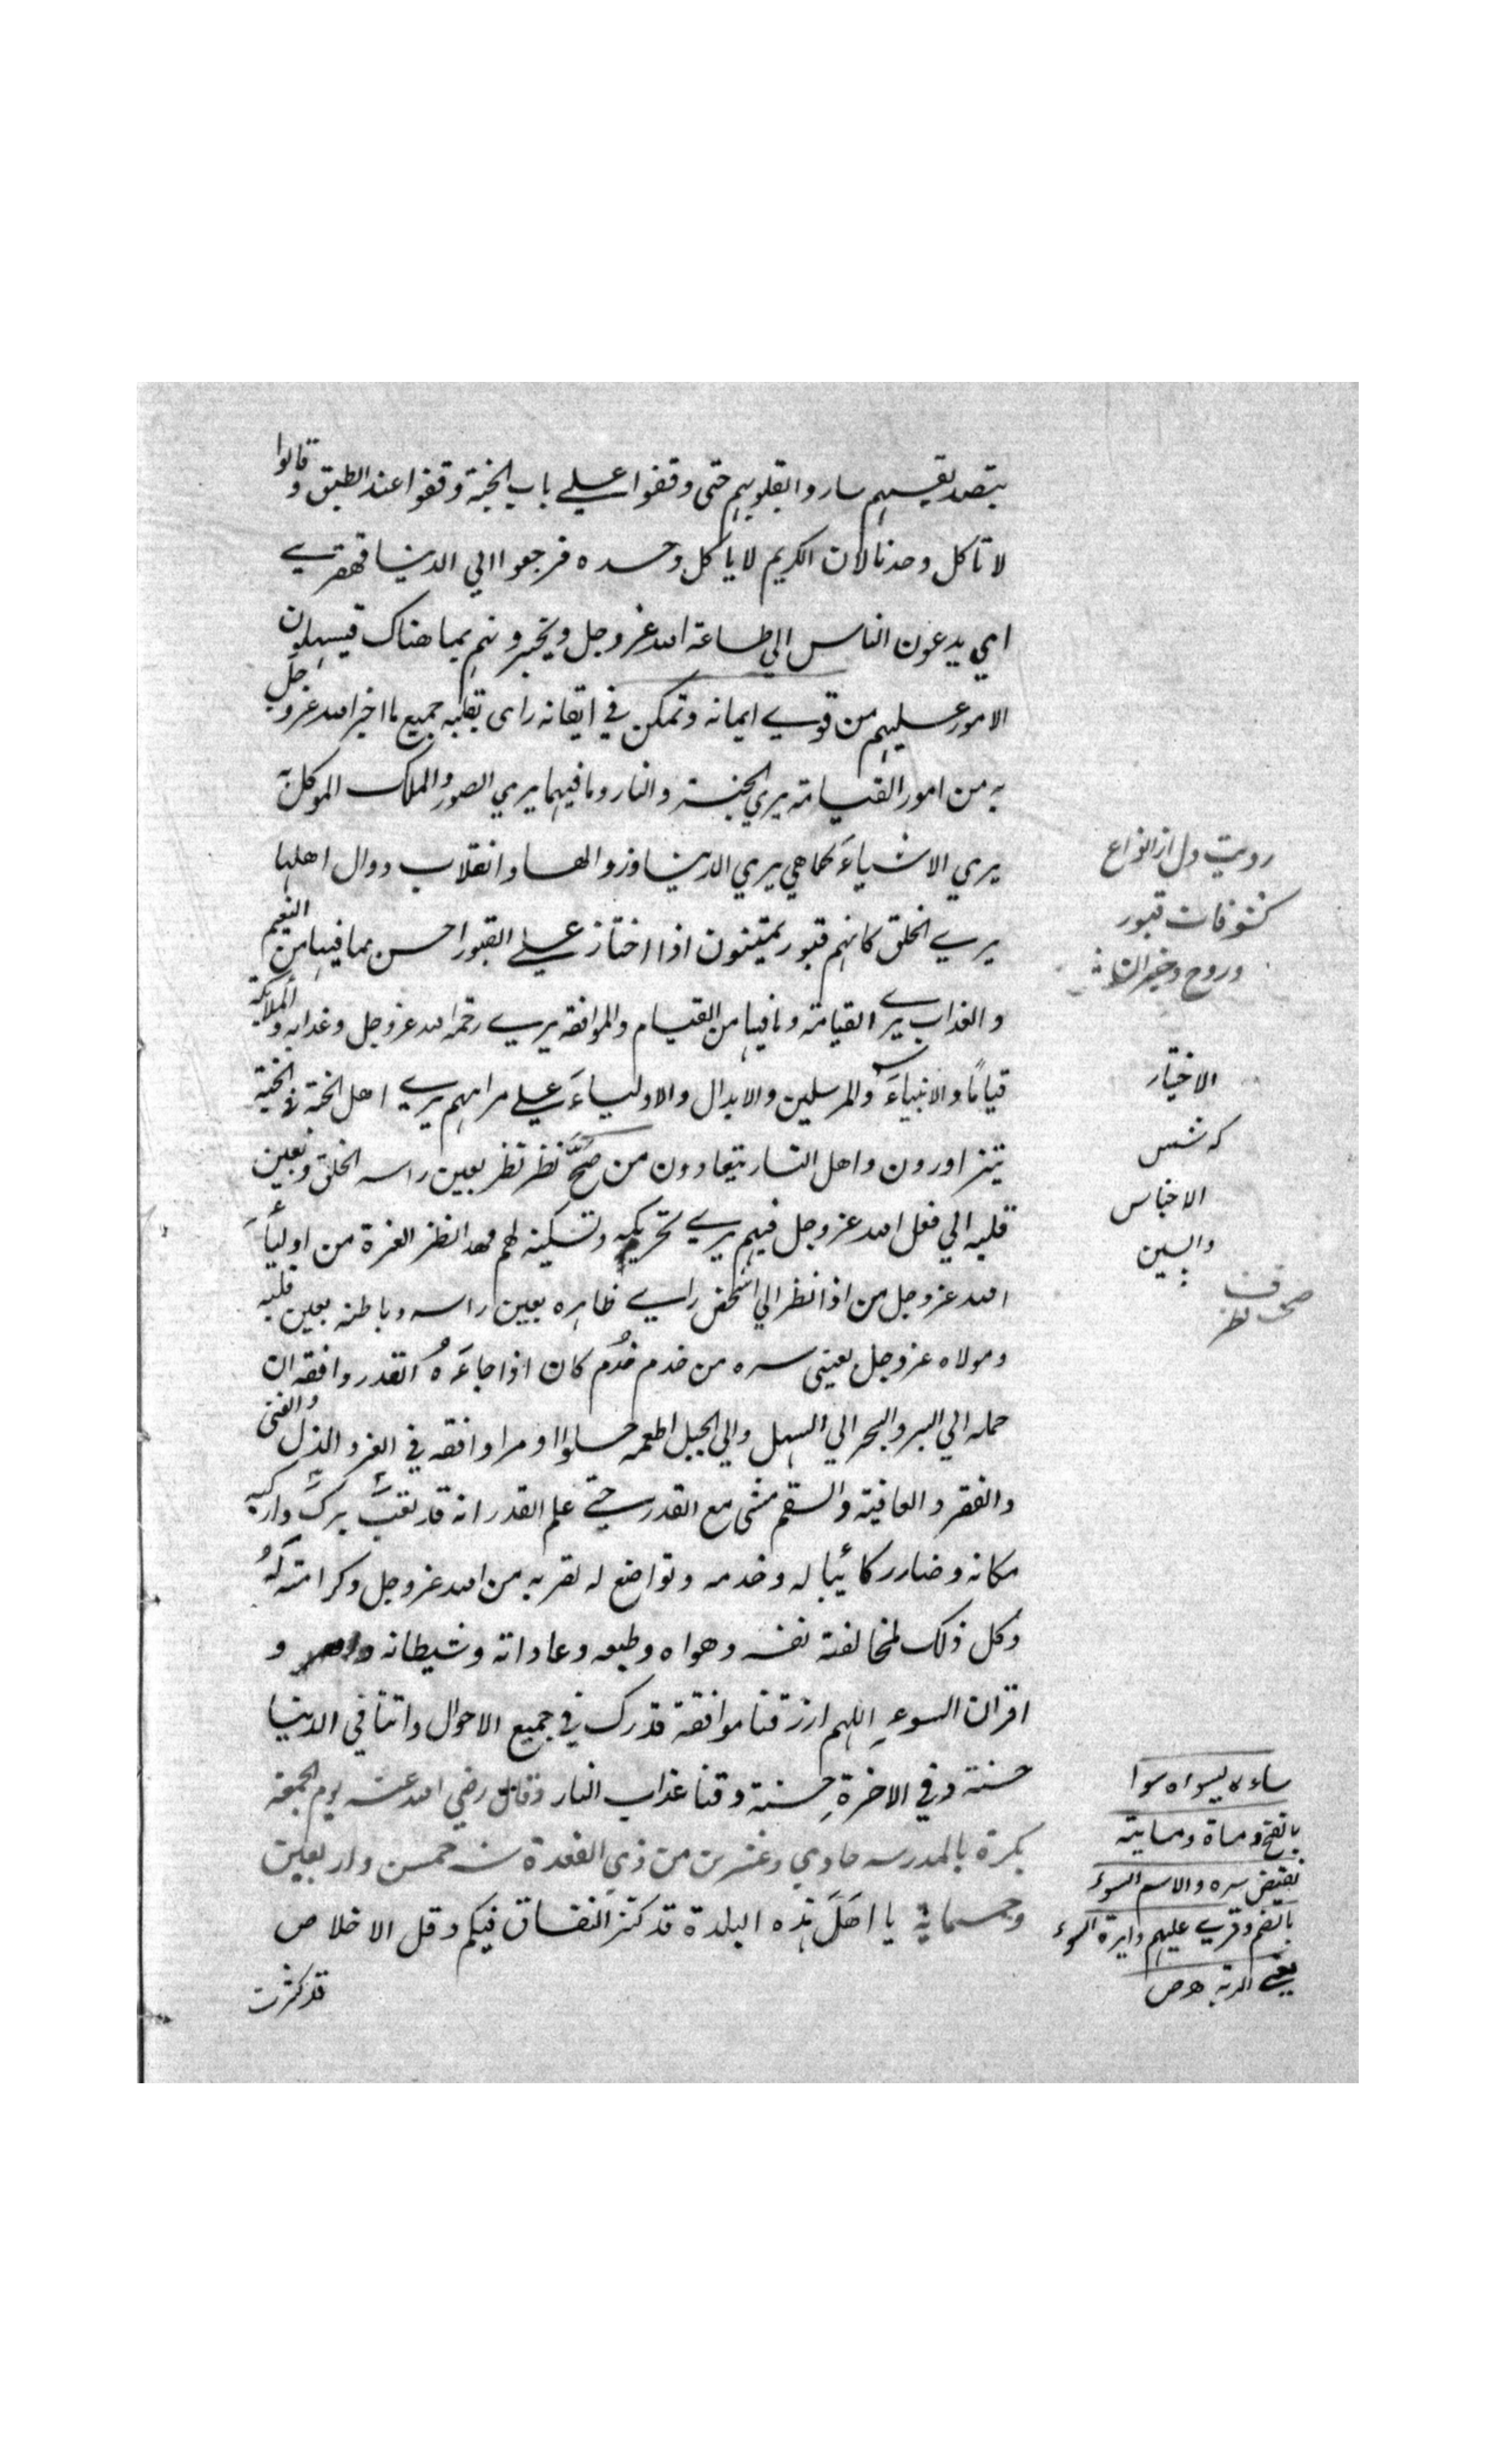 بتصديقهم ساروا بقلوبهم حتى وقفوا علي باب الجنة وقفوا عند الطبق وقالوا
لا تأكل وحدنا لان الكريم لا ياكل وحده فرجعوا الي الدنيا قهقري
اي يدعون الناس الي طاعة الله عز وجل ويخبرونهم بما هناك فيسهلون
الامور عليهم من قوي ايمانه وتمكن في ايقانه راى بقلبه جميع ما اخبر الله عز وجل
به من امور القيامة يري الجنة والنار وما فيهما يري الصور والملك الموكل به
يري الاشياءَ كما هي يري الدنيا وزوالها وانقلاب دوال اهلها
يري الخلق كانهم قبور يمشون اذا اختاز علي القبور احسن مما فيها من النعيم
والعذاب يري القيامة وما فيها من القيام والموافقة يري رحمة الله عز وجل وعذابه والملايكة
قيامًا والانبياءَ والمرسلين والابدال والاولياءَ علي مراتبهم يري اهل الجنة في الجنة
يتزاورون واهل النار يتعادون من صحَّ نظر نظر بعين راسه الخلق وبعين
قلبه الي فعل الله عز وجل فيهم يري تحريكه وتسكينه لهم فهذا نظر العزة من اولياءَ
الله عز وجل من اذا نظر الي الشخص راي ظاهره بعين راسه وباطنه بعين قلبه
ومولاه عز وجل بعيني سره من خدم خُدم كان اذا جاءَهُ القدر وافقه ان
حمله الي البر والبحر الي السهل والي الجبل اطعمه حلوا او مرا وافقه في العز والذل والغنى
والفقر والعافية والسقم مشى مع القدر حتي علم القدر انه قد تعب برك واركبه
مكانه وصار ركائبا له وخدمه وتواضع له لقربه من الله عز وجل وكرامته لهُ
وكل ذلك لمخالفة نفسه وهواه وطبعه وعاداته وشيطانه و
اقران السوءِ اللهم ارزقنا موافقة قدرك في جميع الاحوال واتنا في الدنيا
حسنة وفي الاخرة حسنة وقنا عذاب النار وقال رضي الله عنه يوم الجمعة
بكرة بالمدرسه حادي وعشرين من ذي القعدة سنة خمس واربعين
وخمسماية يا اهلَ هذه البلدة قد كثر النفاق فيكم وقل الاخلاص
قد كثرت
رويت دل از انواع
كشوفات قبور
الاختيار
كذشتن
الاختباس
صحت نظر
ساءه يسوءه سوا
بالفتح ومساة ومساية
نقيض سره والاسم السوء
بالضم وقري عليهم دايرة السوء
يعني